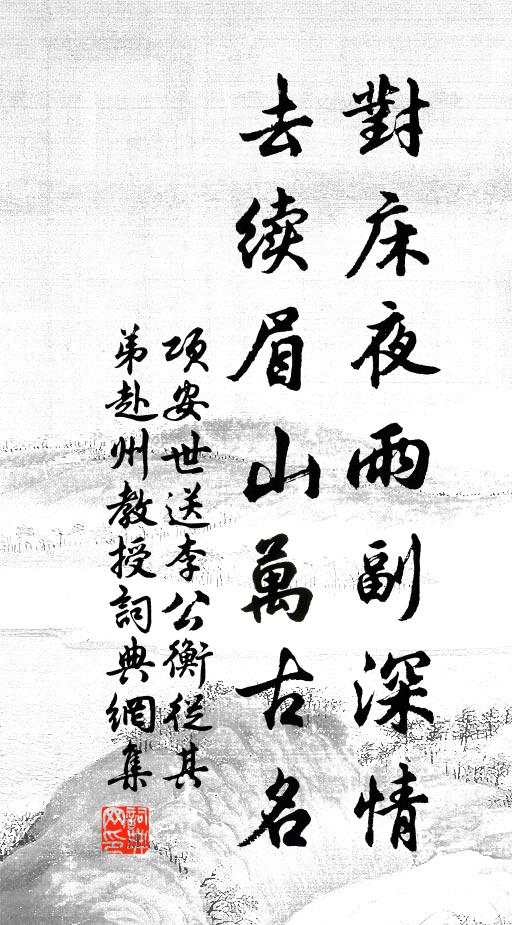 對床夜雨副深情
去续眉山萬古名
项安世送李公衡從其
弟赴州教授詞典網集